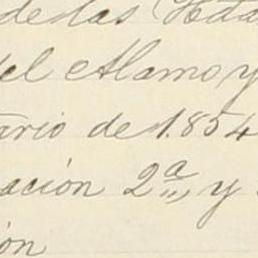 de las
del Alamo y
ario de 1.854
ación 2ª, y
ón